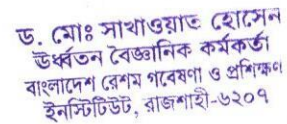 ড. মোঃ সাখাওয়াত হোসেন
ঊর্ধ্বতন বৈজ্ঞানিক কর্মকর্তা
বাংলাদেশ রেশম গবেষণা ও প্রশিক্ষণ
ইনস্টিটিউট, রাজশাহী-৬২০৭